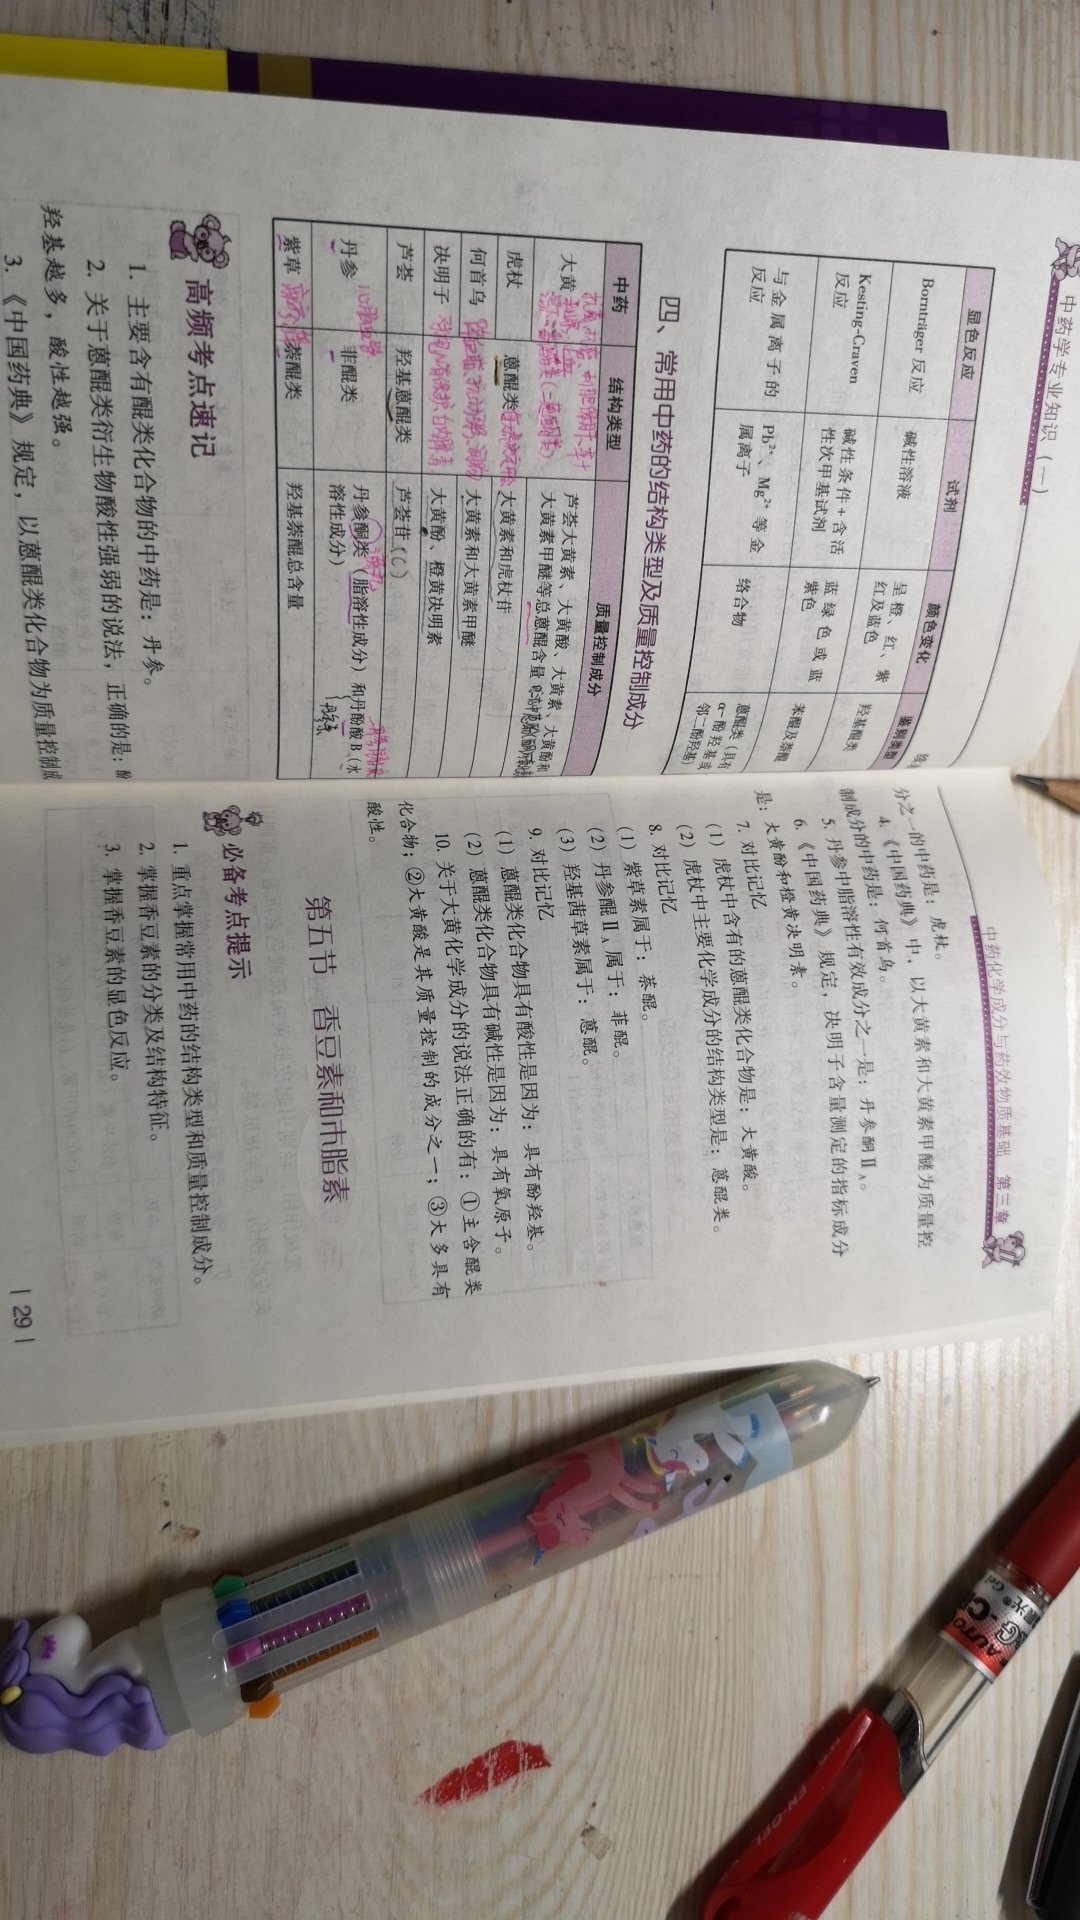 中药学专业知识（一）
显色反应 试剂 颜色变化 鉴别类型
Bornträger 反应 碱性溶液 呈橙、红、紫红及蓝色 羟基醌类
Kesting-Craven 反应 碱性条件+含活性次甲基试剂 蓝绿色或蓝紫色 苯醌及萘醌
与金属离子的反应 Pb²⁺、Mg²⁺等金属离子 络合物 蒽醌类（具有α-酚羟基或邻二酚羟基）
四、常用中药的结构类型及质量控制成分
中药 结构类型 质量控制成分
大黄 芦荟大黄素、大黄酸、大黄素、大黄酚和大黄素甲醚等总蒽醌含量
虎杖 蒽醌类 大黄素和虎杖苷
何首乌 大黄素和大黄素甲醚
决明子 大黄酚、橙黄决明素
芦荟 羟基蒽醌类 芦荟苷
丹参 菲醌类 丹参酮类（脂溶性成分）和丹酚酸 B（水溶性成分）
紫草 萘醌类 羟基萘醌总含量
高频考点速记
1. 主要含有醌类化合物的中药是：丹参。
2. 关于蒽醌类衍生物酸性强弱的说法，正确的是：酚
羟基越多，酸性越强。
3. 《中国药典》规定，以蒽醌类化合物为质量控制成
中药化学成分与药效物质基础 第三章
分之一的中药是：虎杖。
4. 《中国药典》中，以大黄素和大黄素甲醚为质量控
制成分的中药是：何首乌。
5. 丹参中脂溶性有效成分之一是：丹参酮Ⅱ_A。
6. 《中国药典》规定，决明子含量测定的指标成分
是：大黄酚和橙黄决明素。
7. 对比记忆
（1）虎杖中含有的蒽醌类化合物是：大黄酸。
（2）虎杖中主要化学成分的结构类型是：蒽醌类。
8. 对比记忆
（1）紫草素属于：萘醌。
（2）丹参醌Ⅱ_A属于：菲醌。
（3）羟基茜草素属于：蒽醌。
9. 对比记忆
（1）蒽醌类化合物具有酸性是因为：具有酚羟基。
（2）蒽醌类化合物具有碱性是因为：具有氧原子。
10. 关于大黄化学成分的说法正确的有：①主含醌类
化合物；②大黄酸是其质量控制的成分之一；③大多具有
酸性。
第五节 香豆素和木脂素
必备考点提示
1. 重点掌握常用中药的结构类型和质量控制成分。
2. 掌握香豆素的分类及结构特征。
3. 掌握香豆素的显色反应。
| 29 |